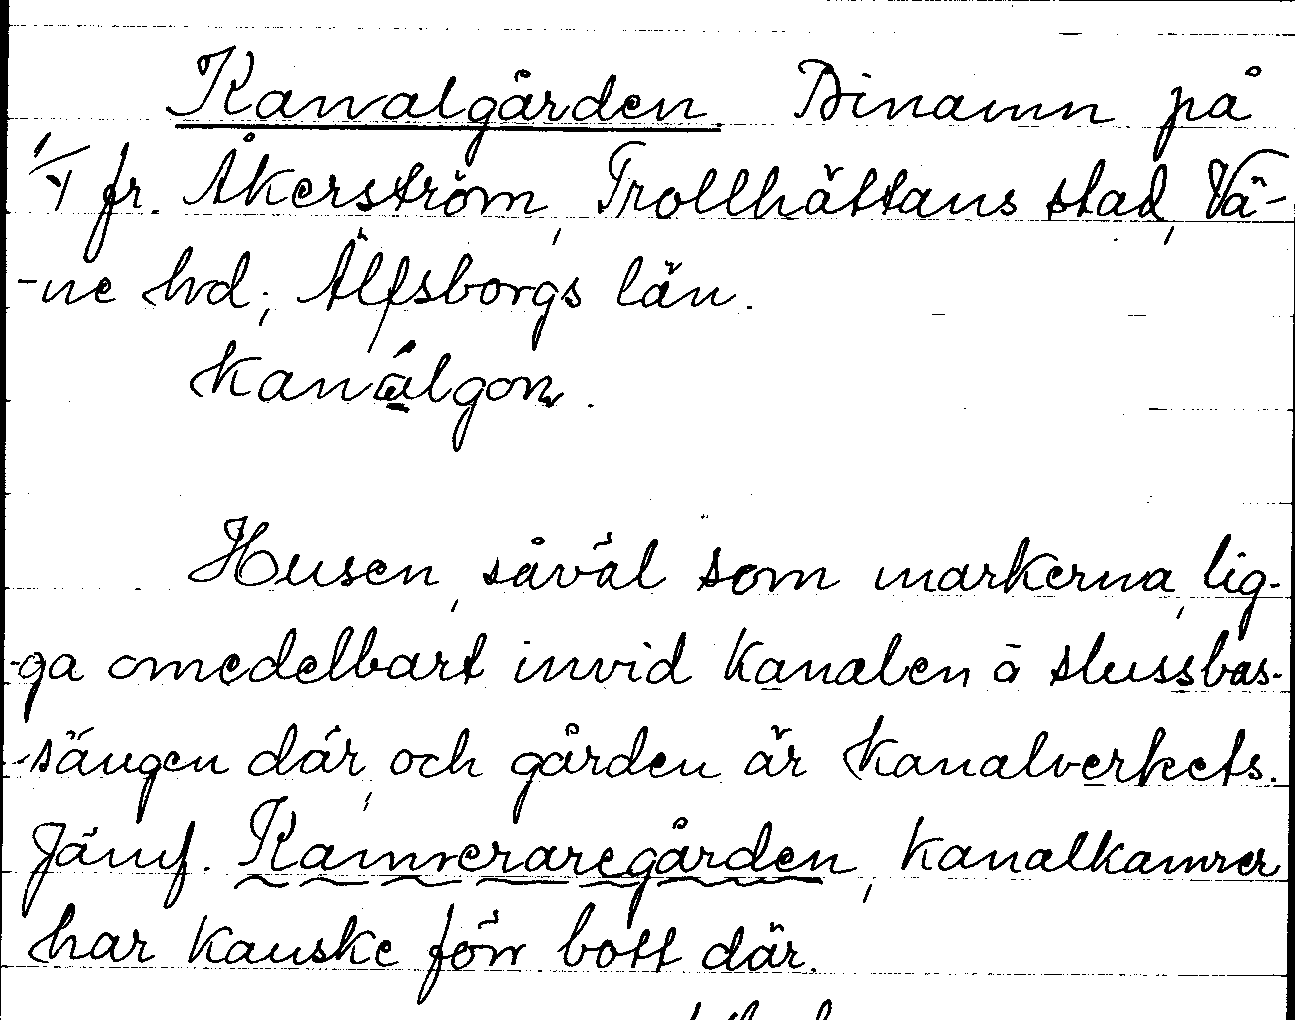 Kanalgården. Binamn på
1/4 fr. Åkerström, Trollhättans stad, Vä-
-ne hd; Älfsborgs län.
kanálgoṇ.
Husen, såväl som markerna, lig-
-ga omedelbart invid kanalen, å slussbas-
-sängen där, och gården är kanalverkets.
Jämf. Kamreraregården, kanalkamrer
har kanske förr bott där.